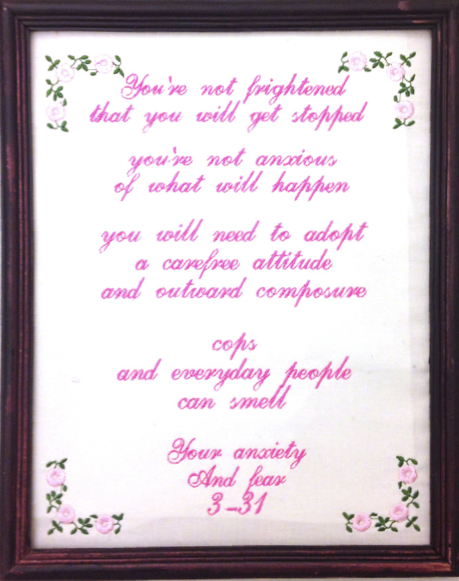 You're not frightened
that you will get stopped
you're not anxious
of what will happen
you will need to adopt
a carefree attitude
and outward composure
cops
and everyday people
can smell
Your anxiety
And fear
3-31